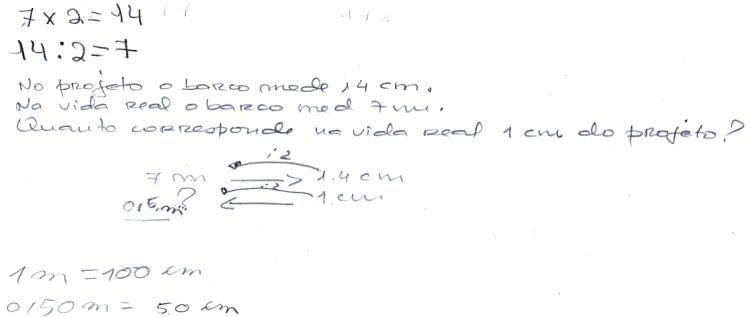 7 x 2 = 14
14 : 2 = 7
No projeto o barco mede 14 cm.
Na vida real o barco med 7 m.
Quanto corresponde na vida real 1 cm do projeto?
: 2
7 m 14 cm
: 2
0,5 m ? 1 cm
1 m = 100 cm
0,50 m = 50 cm